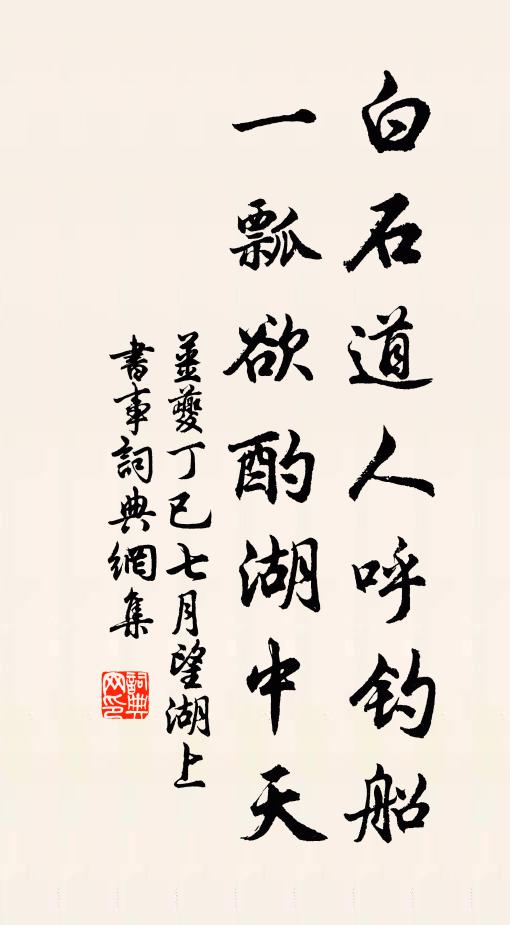 白石道人呼釣船
一瓢欲酌湖中天
姜夔丁巳七月望湖上
書事詞典網集
詞典网印